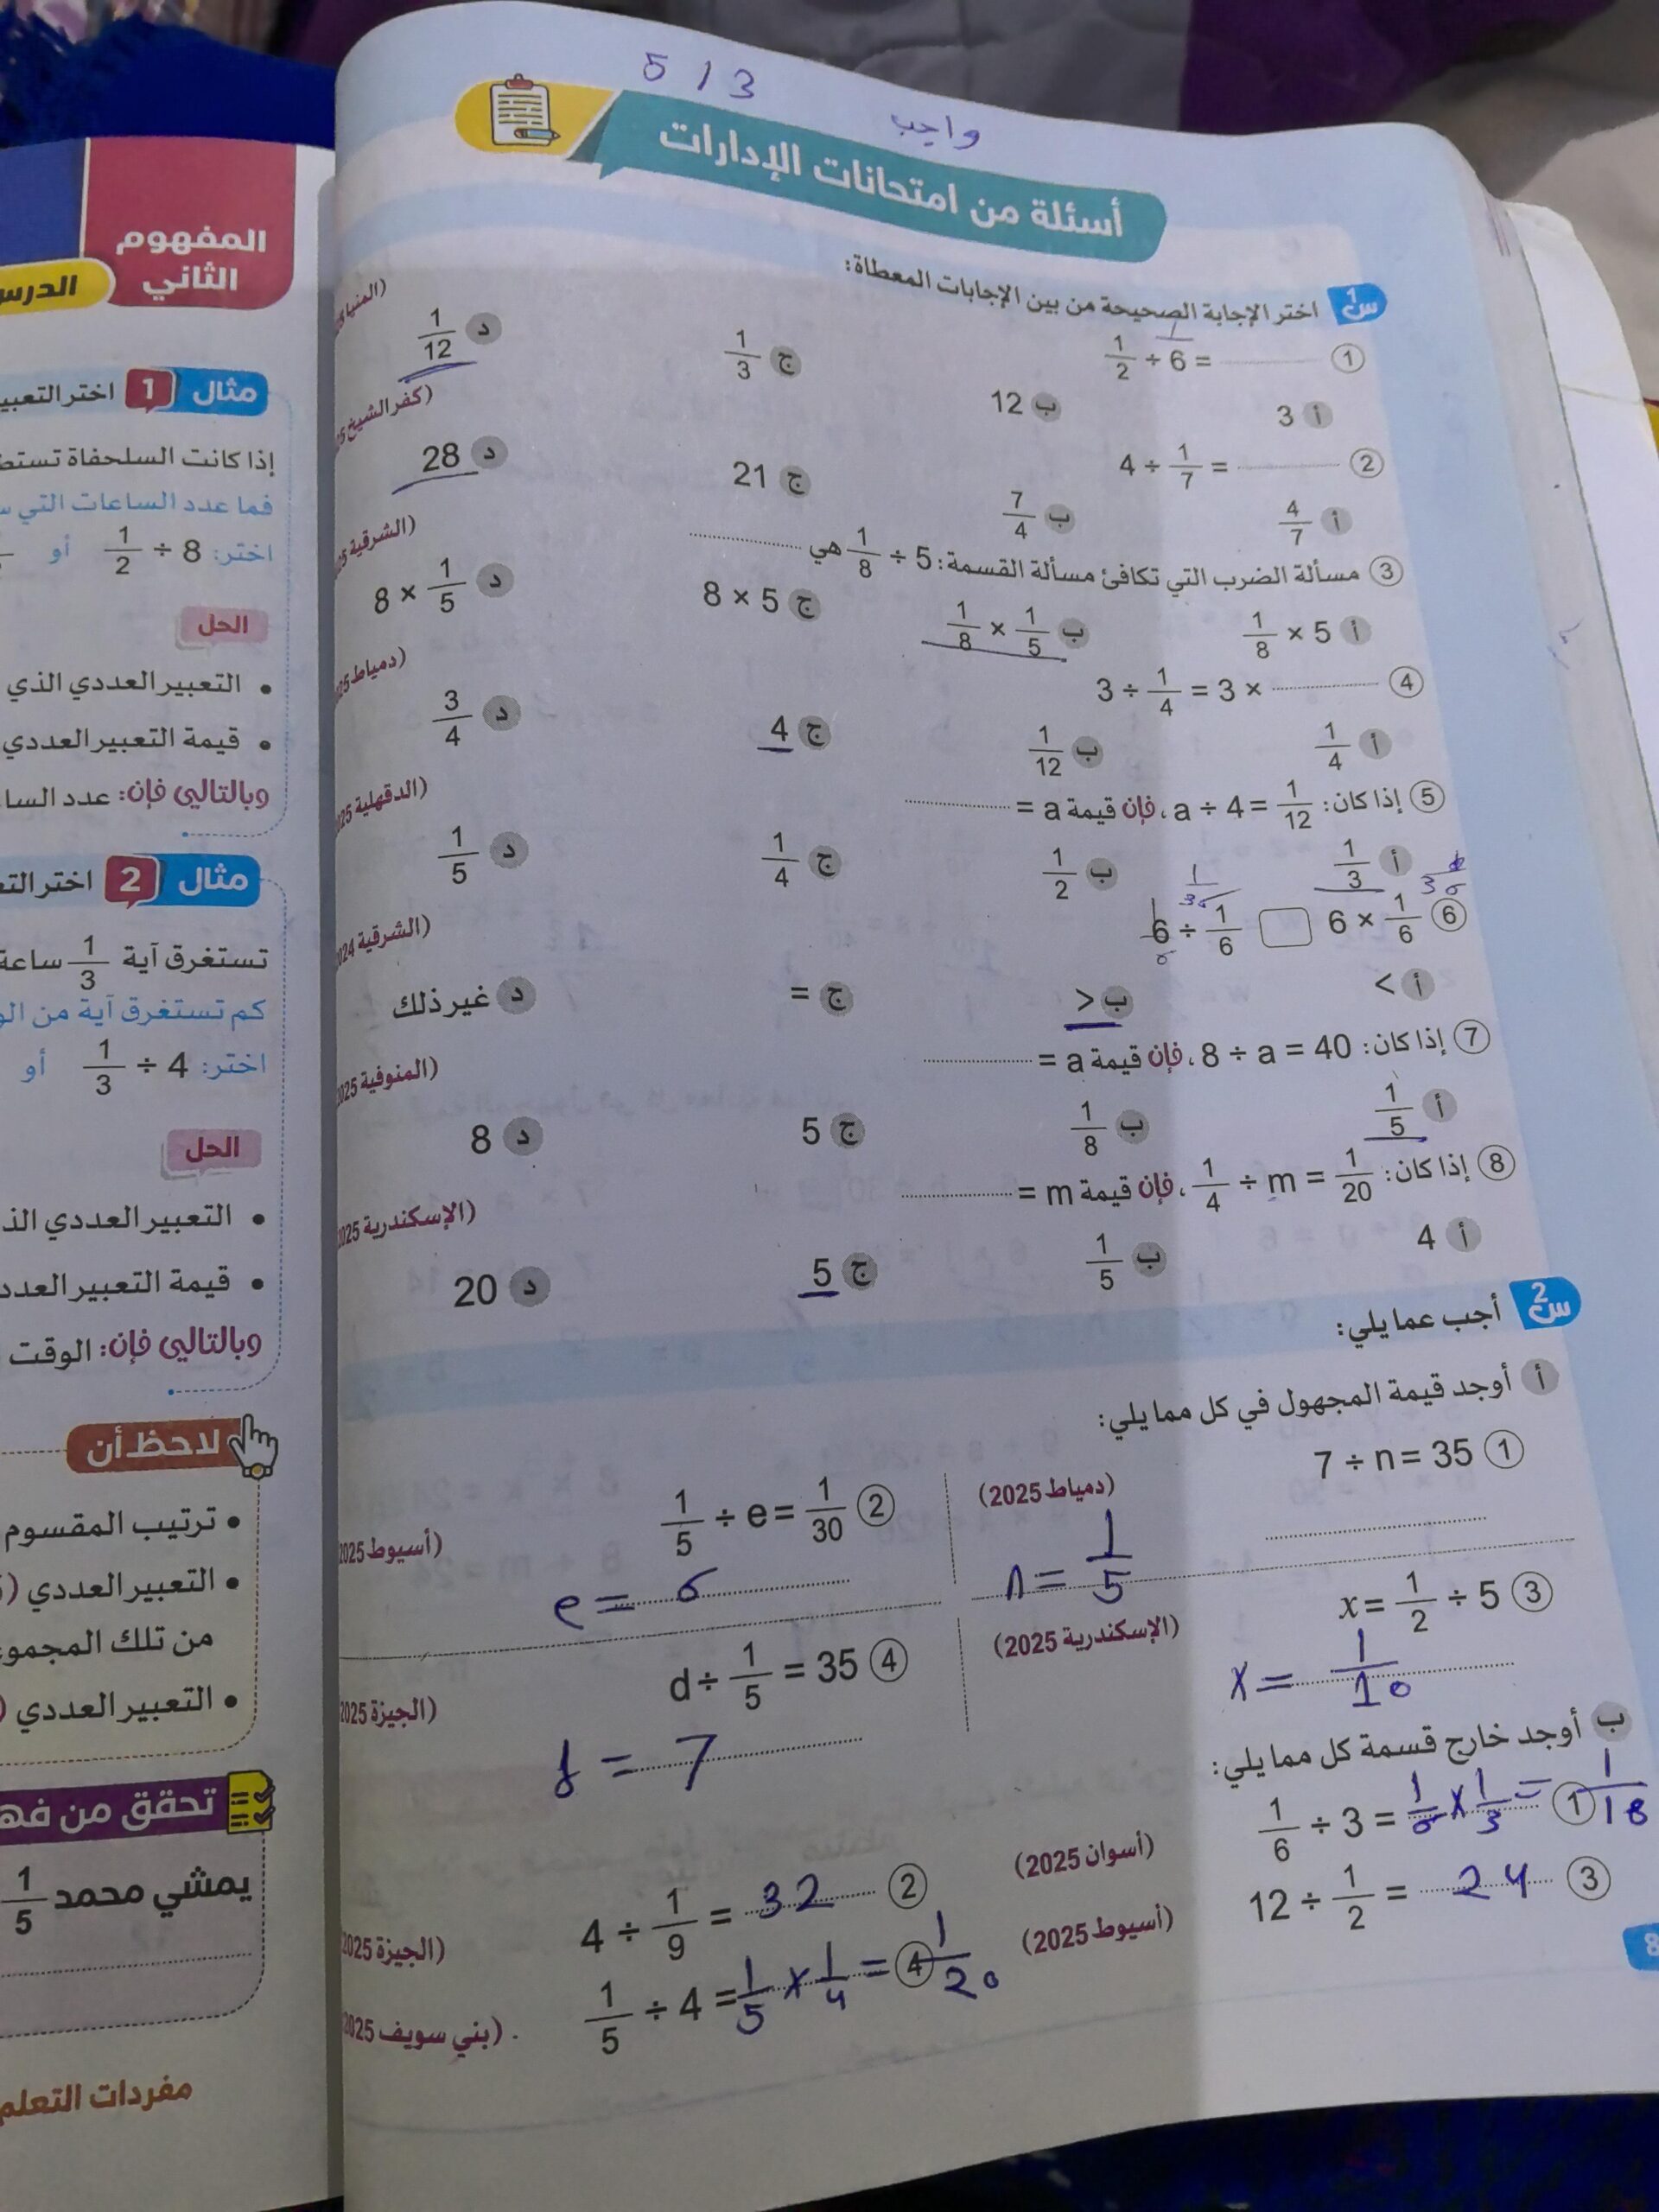 5 / 3
واجب
أسئلة من امتحانات الإدارات
س1 اختر الإجابة الصحيحة من بين الإجابات المعطاة:
① 1/2 ÷ 6 = ............ (المنيا
أ 3 ب 12 ج 1/3 د 1/12
② 4 ÷ 1/7 = ............ (كفر الشيخ
أ 4/7 ب 7/4 ج 21 د 28
③ مسألة الضرب التي تكافئ مسألة القسمة: 1/8 ÷ 5 هي ............ (الشرقية
أ 1/8 × 5 ب 1/8 × 1/5 ج 8 × 5 د 8 × 1/5
④ 3 ÷ 1/4 = 3 × ............ (دمياط 2025
أ 1/4 ب 1/12 ج 4 د 3/4
⑤ إذا كان: a ÷ 4 = 1/12، فإن قيمة a = ............ (الدقهلية 2025
أ 1/3 ب 1/2 ج 1/4 د 1/5
⑥ 6 ÷ 1/6 □ 6 × 1/6 (الشرقية 2024
أ < ب > ج = د غير ذلك
⑦ إذا كان: 8 ÷ a = 40، فإن قيمة a = ............ (المنوفية 2025
أ 1/5 ب 1/8 ج 5 د 8
⑧ إذا كان: 1/4 ÷ m = 1/20، فإن قيمة m = ............ (الإسكندرية 2025
أ 4 ب 1/5 ج 5 د 20
س2 أجب عما يلي:
أ أوجد قيمة المجهول في كل مما يلي:
① 7 ÷ n = 35 (دمياط 2025)
n = 1/5
② 1/5 ÷ e = 1/30 (أسيوط 2025
e = 6
③ x = 1/2 ÷ 5 (الإسكندرية 2025)
x = 1/10
④ d ÷ 1/5 = 35 (الجيزة 2025
d = 7
ب أوجد خارج قسمة كل مما يلي:
① 1/6 ÷ 3 = 1/6 × 1/3 = 1/18 (أسوان 2025)
② 4 ÷ 1/9 = 32 (الجيزة 2025
③ 12 ÷ 1/2 = 24 (أسيوط 2025)
④ 1/5 ÷ 4 = 1/5 × 1/4 = 1/20 (بني سويف 2025
8
المفهوم
الثاني
الدرس
مثال 1 اختر التعبير
إذا كانت السلحفاة
فما عدد الساعات التي
اختر: 8 ÷ 1/2 أو
الحل
• التعبير العددي الذي
• قيمة التعبير العددي
وبالتالي فإن: عدد
مثال 2 اختر
تستغرق آية 1/3 ساعة
كم تستغرق آية من
اختر: 4 ÷ 1/3 أو
الحل
• التعبير العددي
• قيمة التعبير
وبالتالي فإن: الوقت
لاحظ أن
• ترتيب المقسوم
• التعبير العددي (
من تلك
• التعبير العددي (
تحقق من
يمشي محمد 1/5
مفردات التعلم